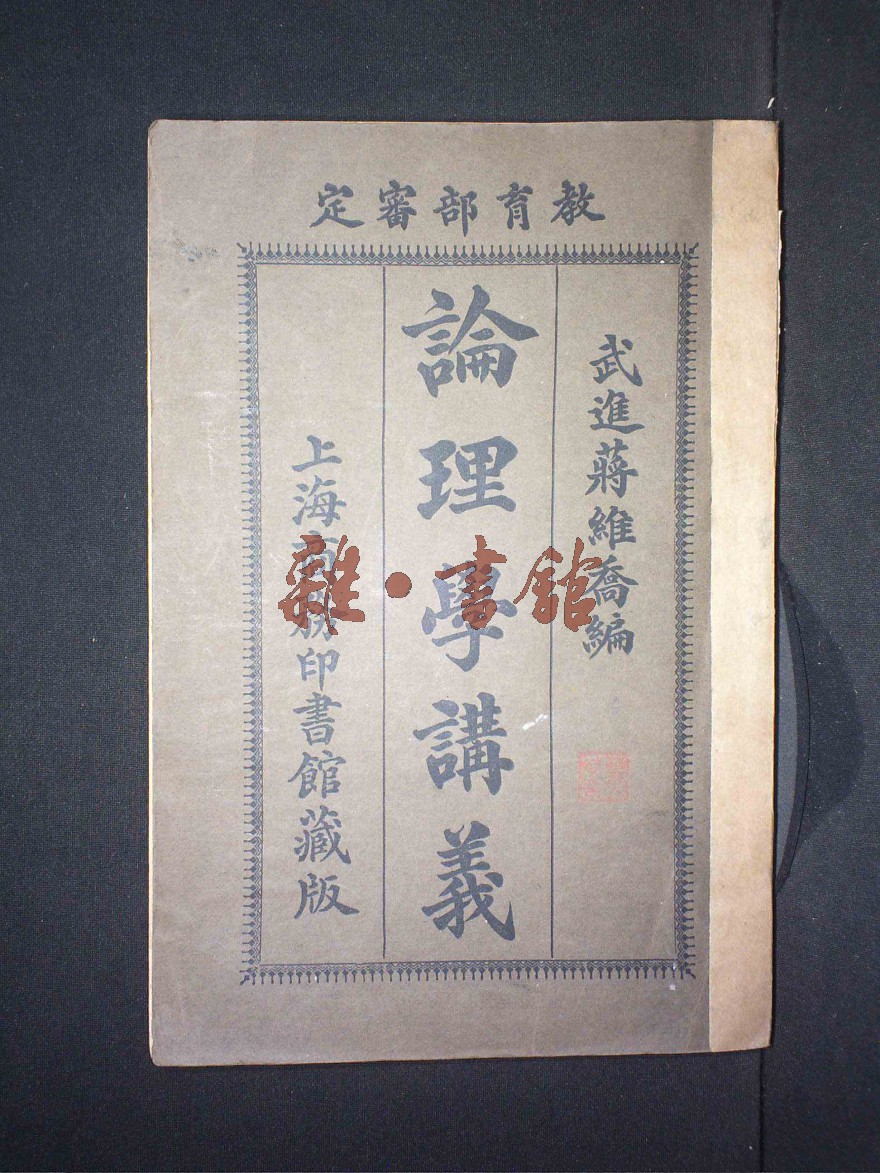 教育部審定
武進蔣維喬編
論理學講義
上海商務印書館藏版
雜·書館